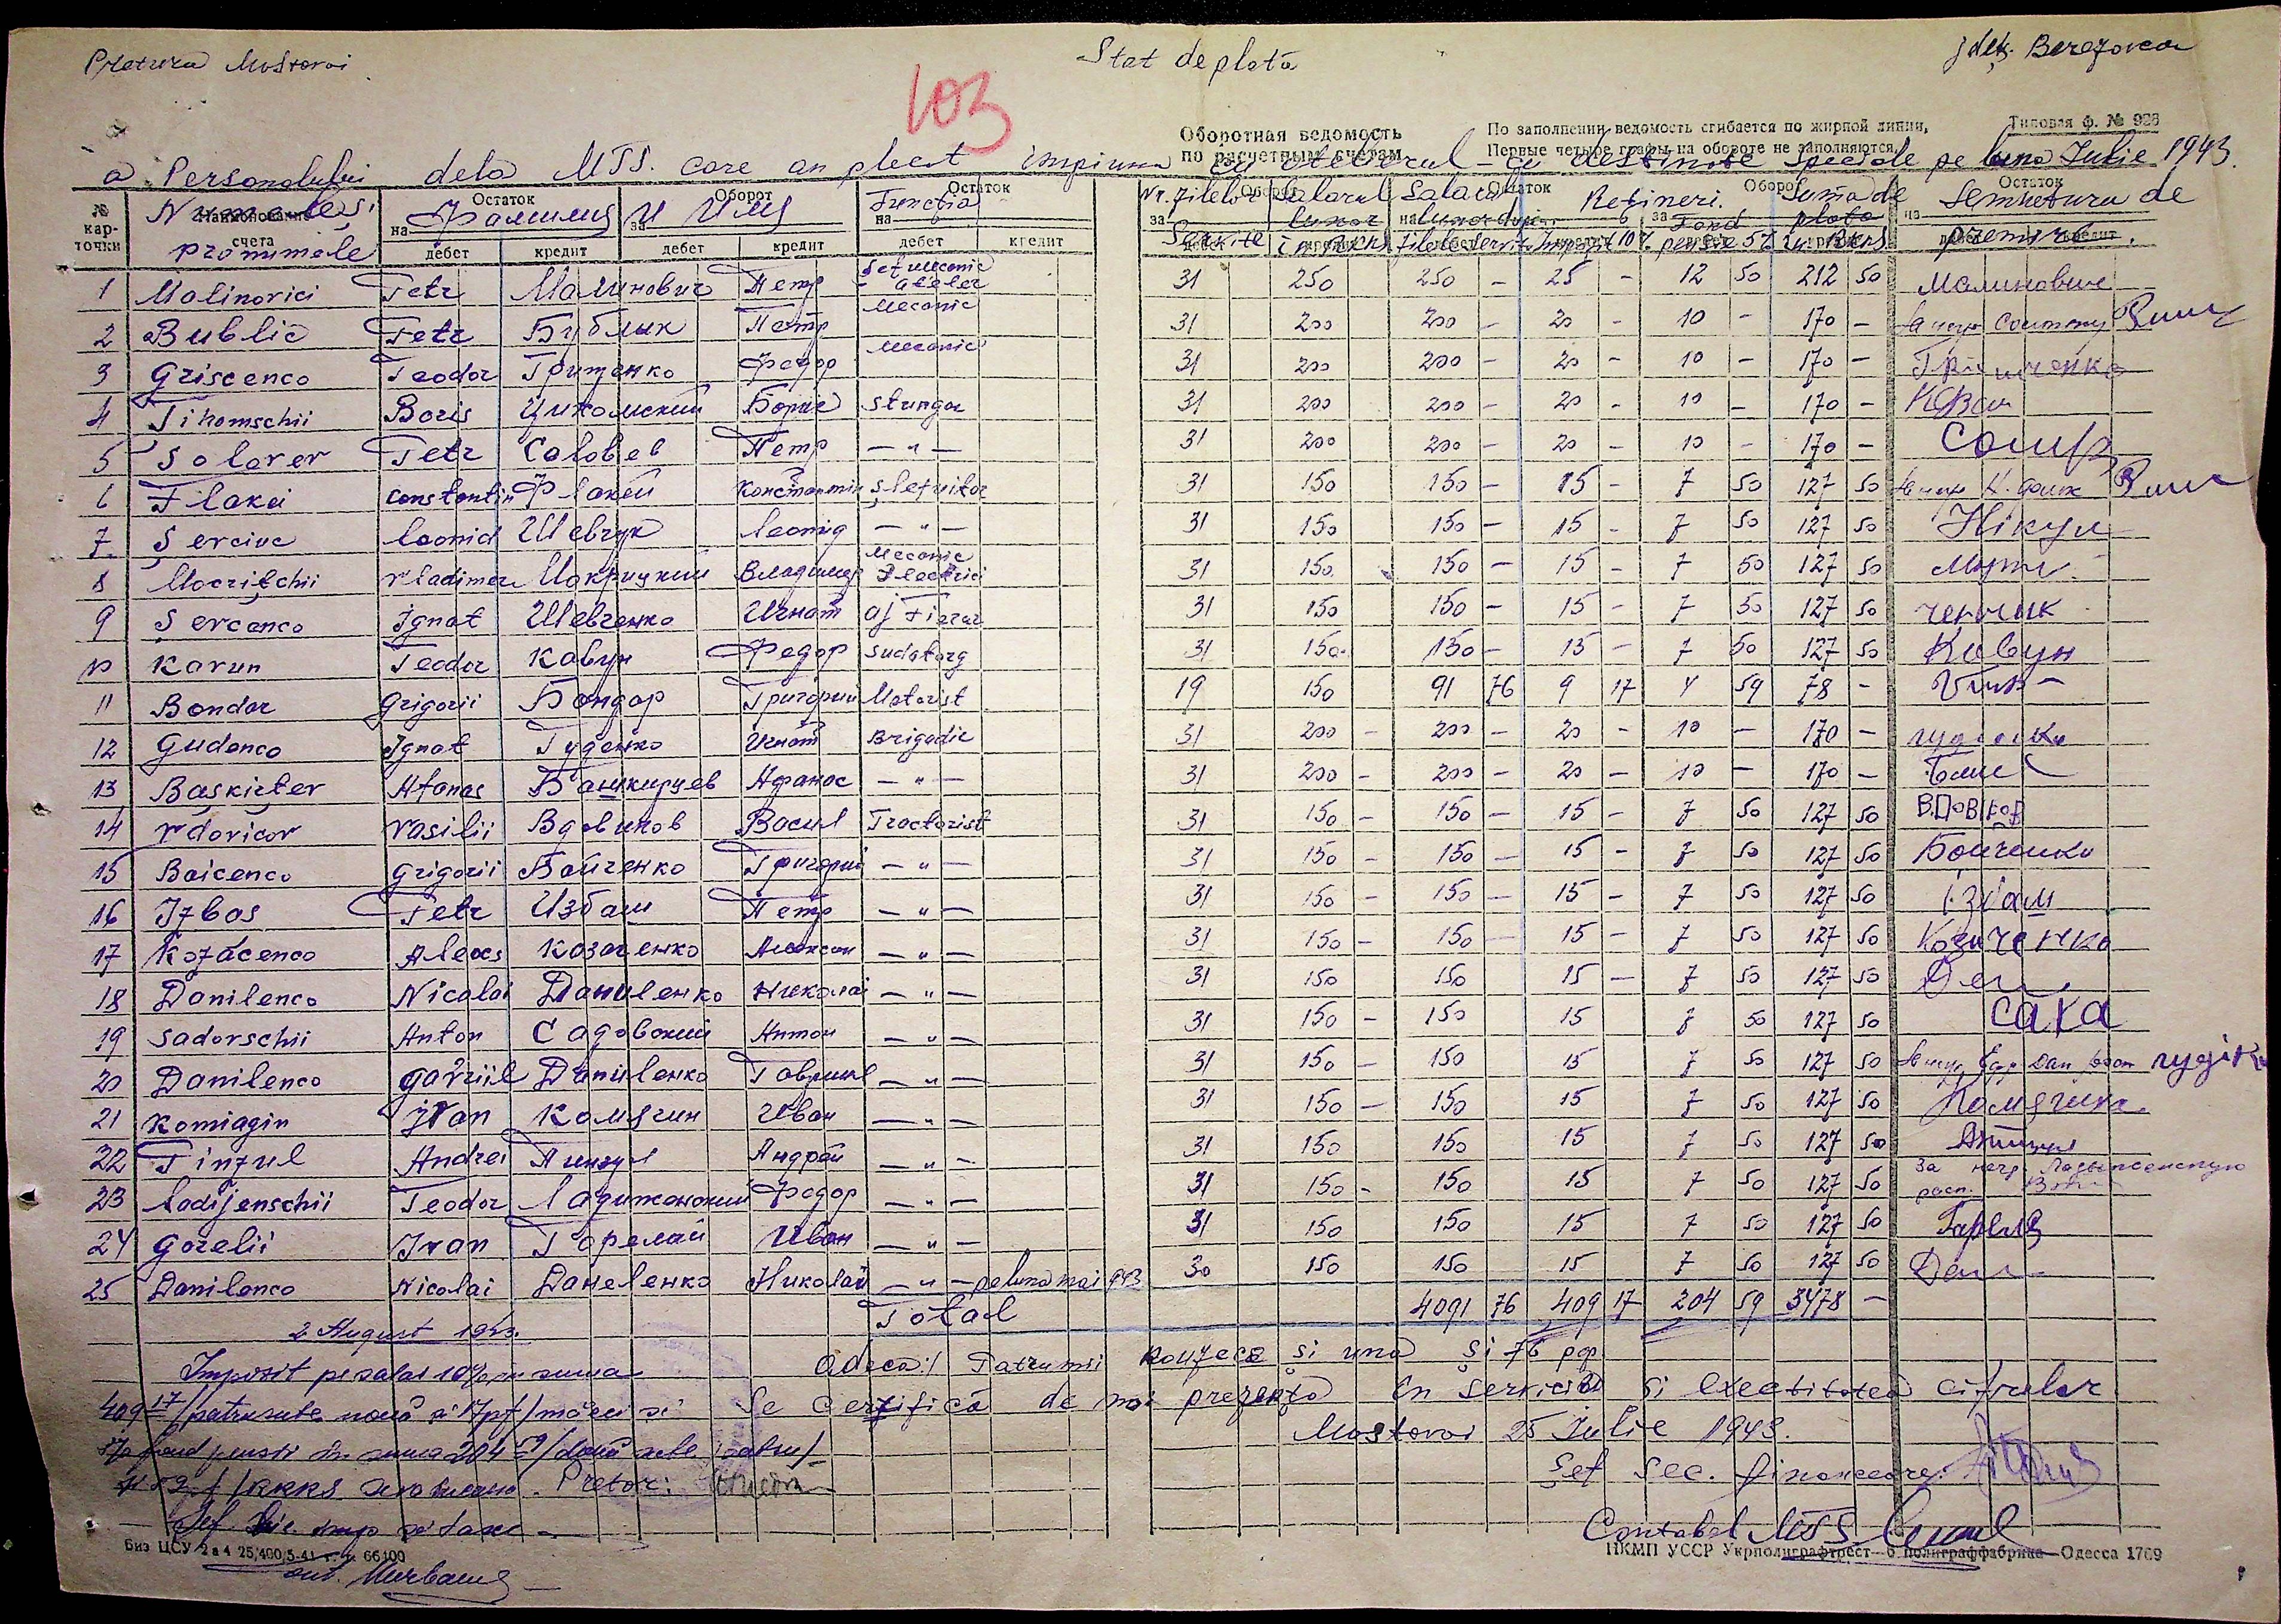 Pretura Mostovoi
Stat de plată
Jdeţ. Berezovca
103
Оборотная ведомость
по расчетным счетам
По заполнении ведомость сгибается по жирной линии,
Первые четыре графы на обороте не заполняются.
Типовая ф. № 926
a Personalului dela MTS. care au plecat impreuna cu - cu destinatie speciale pe luna Iulie 1943.
№ кар-точки Наименование счета Остаток на Оборот за Остаток на Оборот за Остаток на Оборот за Остаток на
Numele şi pronumele Фамилия и Имя Functia Nr. zilelor Servite Salarul lunar in RKKS Salarul lunar după zilele servite Retineri. Impozit 10% Fond pensie 5% Suma de plata in RKKS Semnatura de primire.
дебет кредит дебет кредит дебет кредит
1 Malinovici Petr Малинович Петр Şef mecanic atelier 31 250 250 - 25 - 12 50 212 50 Малинович
2 Bublic Petr Бублик Петр Mecanic 31 200 200 - 20 - 10 - 170 -
3 Griscenco Teodor Грищенко Федор Mecanic 31 200 200 - 20 - 10 - 170 - Грищенко
4 Tihomschii Boris Цихомский Борис Strungar 31 200 200 - 20 - 10 - 170 -
5 Solovev Petr Соловьев Петр — " — 31 200 200 - 20 - 10 - 170 -
6 Flakei Constantin Флакей Константин Slefuitor 31 150 150 - 15 - 7 50 127 50
7 Şevciuc Leonid Шевчук Леонид — " — 31 150 150 - 15 - 7 50 127 50
8 Mocriţchii Vladimer Мокрицкий Владимер Mecanic Electrici 31 150 150 - 15 - 7 50 127 50
9 Şevcenco Ignat Шевченко Игнат Aj Fierar 31 150 150 - 15 - 7 50 127 50
10 Kavun Teodor Кавун Федор Sudatorg 31 150 150 - 15 - 7 50 127 50 Кавун
11 Bondar Grigorii Бондар Григорий Motorist 19 150 91 76 9 17 4 59 78 -
12 Gudenco Ignat Гуденко Игнат Brigadir 31 200 - 200 - 20 - 10 - 170 -
13 Başkirţev Afanas Башкирцев Афанас — " — 31 200 - 200 - 20 - 10 - 170 -
14 Vdovicov Vasilii Вдовиков Васил Tractorist 31 150 - 150 - 15 - 7 50 127 50
15 Boicenco Grigorii Бойченко Григорий — " — 31 150 - 150 - 15 - 7 50 127 50 Бойченко
16 Izbaş Petr Избаш Петр — " — 31 150 - 150 - 15 - 7 50 127 50
17 Kozăcenco Alecs Козаченко Алексан — " — 31 150 - 150 - 15 - 7 50 127 50 Козаченко
18 Danilenco Nicolai Даниленко Николай — " — 31 150 150 15 - 7 50 127 50
19 Sadovschii Anton Садовский Антон — " — 31 150 - 150 15 7 50 127 50
20 Danilenco Gavriil Даниленко Гавриил — " — 31 150 - 150 15 7 50 127 50
21 Komiagin Ivan Комягин Иван — " — 31 150 - 150 15 7 50 127 50
22 Pinzul Andrei Пинзул Андрей — " — 31 150 150 15 7 50 127 50
23 Ladijenschii Teodor Ладиженский Федор — " — 31 150 - 150 15 7 50 127 50 За негр. Ладыженскую расп.
24 Gorelii Ivan Горелай Иван — " — 31 150 150 15 7 50 127 50
25 Danilenco Nicolai Даниленко Николай — " — pe luna mai 943 30 150 150 15 7 50 127 50
Total 4091 76 409 17 204 59 3478 -
2 August 1943.
Adeca:/ Patrumii nouzeci si una şi 76 pf
Impozit pe salar 10% in suma
409 17/patrusute nouă si 17pf/mărci si
Se certifică de noi prezenţa in serviciu şi exactitatea cifrelor
5% fond pensii in suma 204 59/două sute patru/
Mostovoi 25 Iulie 1943.
Pretor:
Şef Sec. financeare:
Contabil MTS
Биз ЦСУ 2 а 4 25/400/5-41 г. № 66400
НКМП УССР Укрполиграфтрест—6 полиграффабрика—Одесса 1769